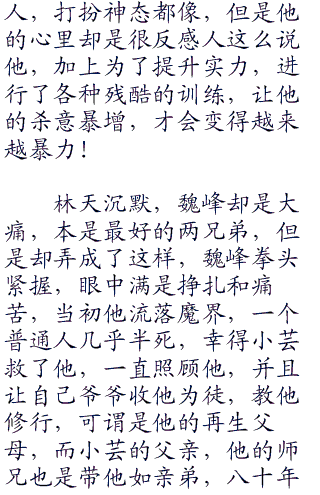 人，打扮神态都像，但是他
的心里却是很反感人这么说
他，加上为了提升实力，进
行了各种残酷的训练，让他
的杀意暴增，才会变得越来
越暴力！
林天沉默，魏峰却是大
痛，本是最好的两兄弟，但
是却弄成了这样，魏峰拳头
紧握，眼中满是挣扎和痛
苦，当初他流落魔界，一个
普通人几乎半死，幸得小芸
救了他，一直照顾他，并且
让自己爷爷收他为徒，教他
修行，可谓是他的再生父
母，而小芸的父亲，他的师
兄也是带他如亲弟，八十年